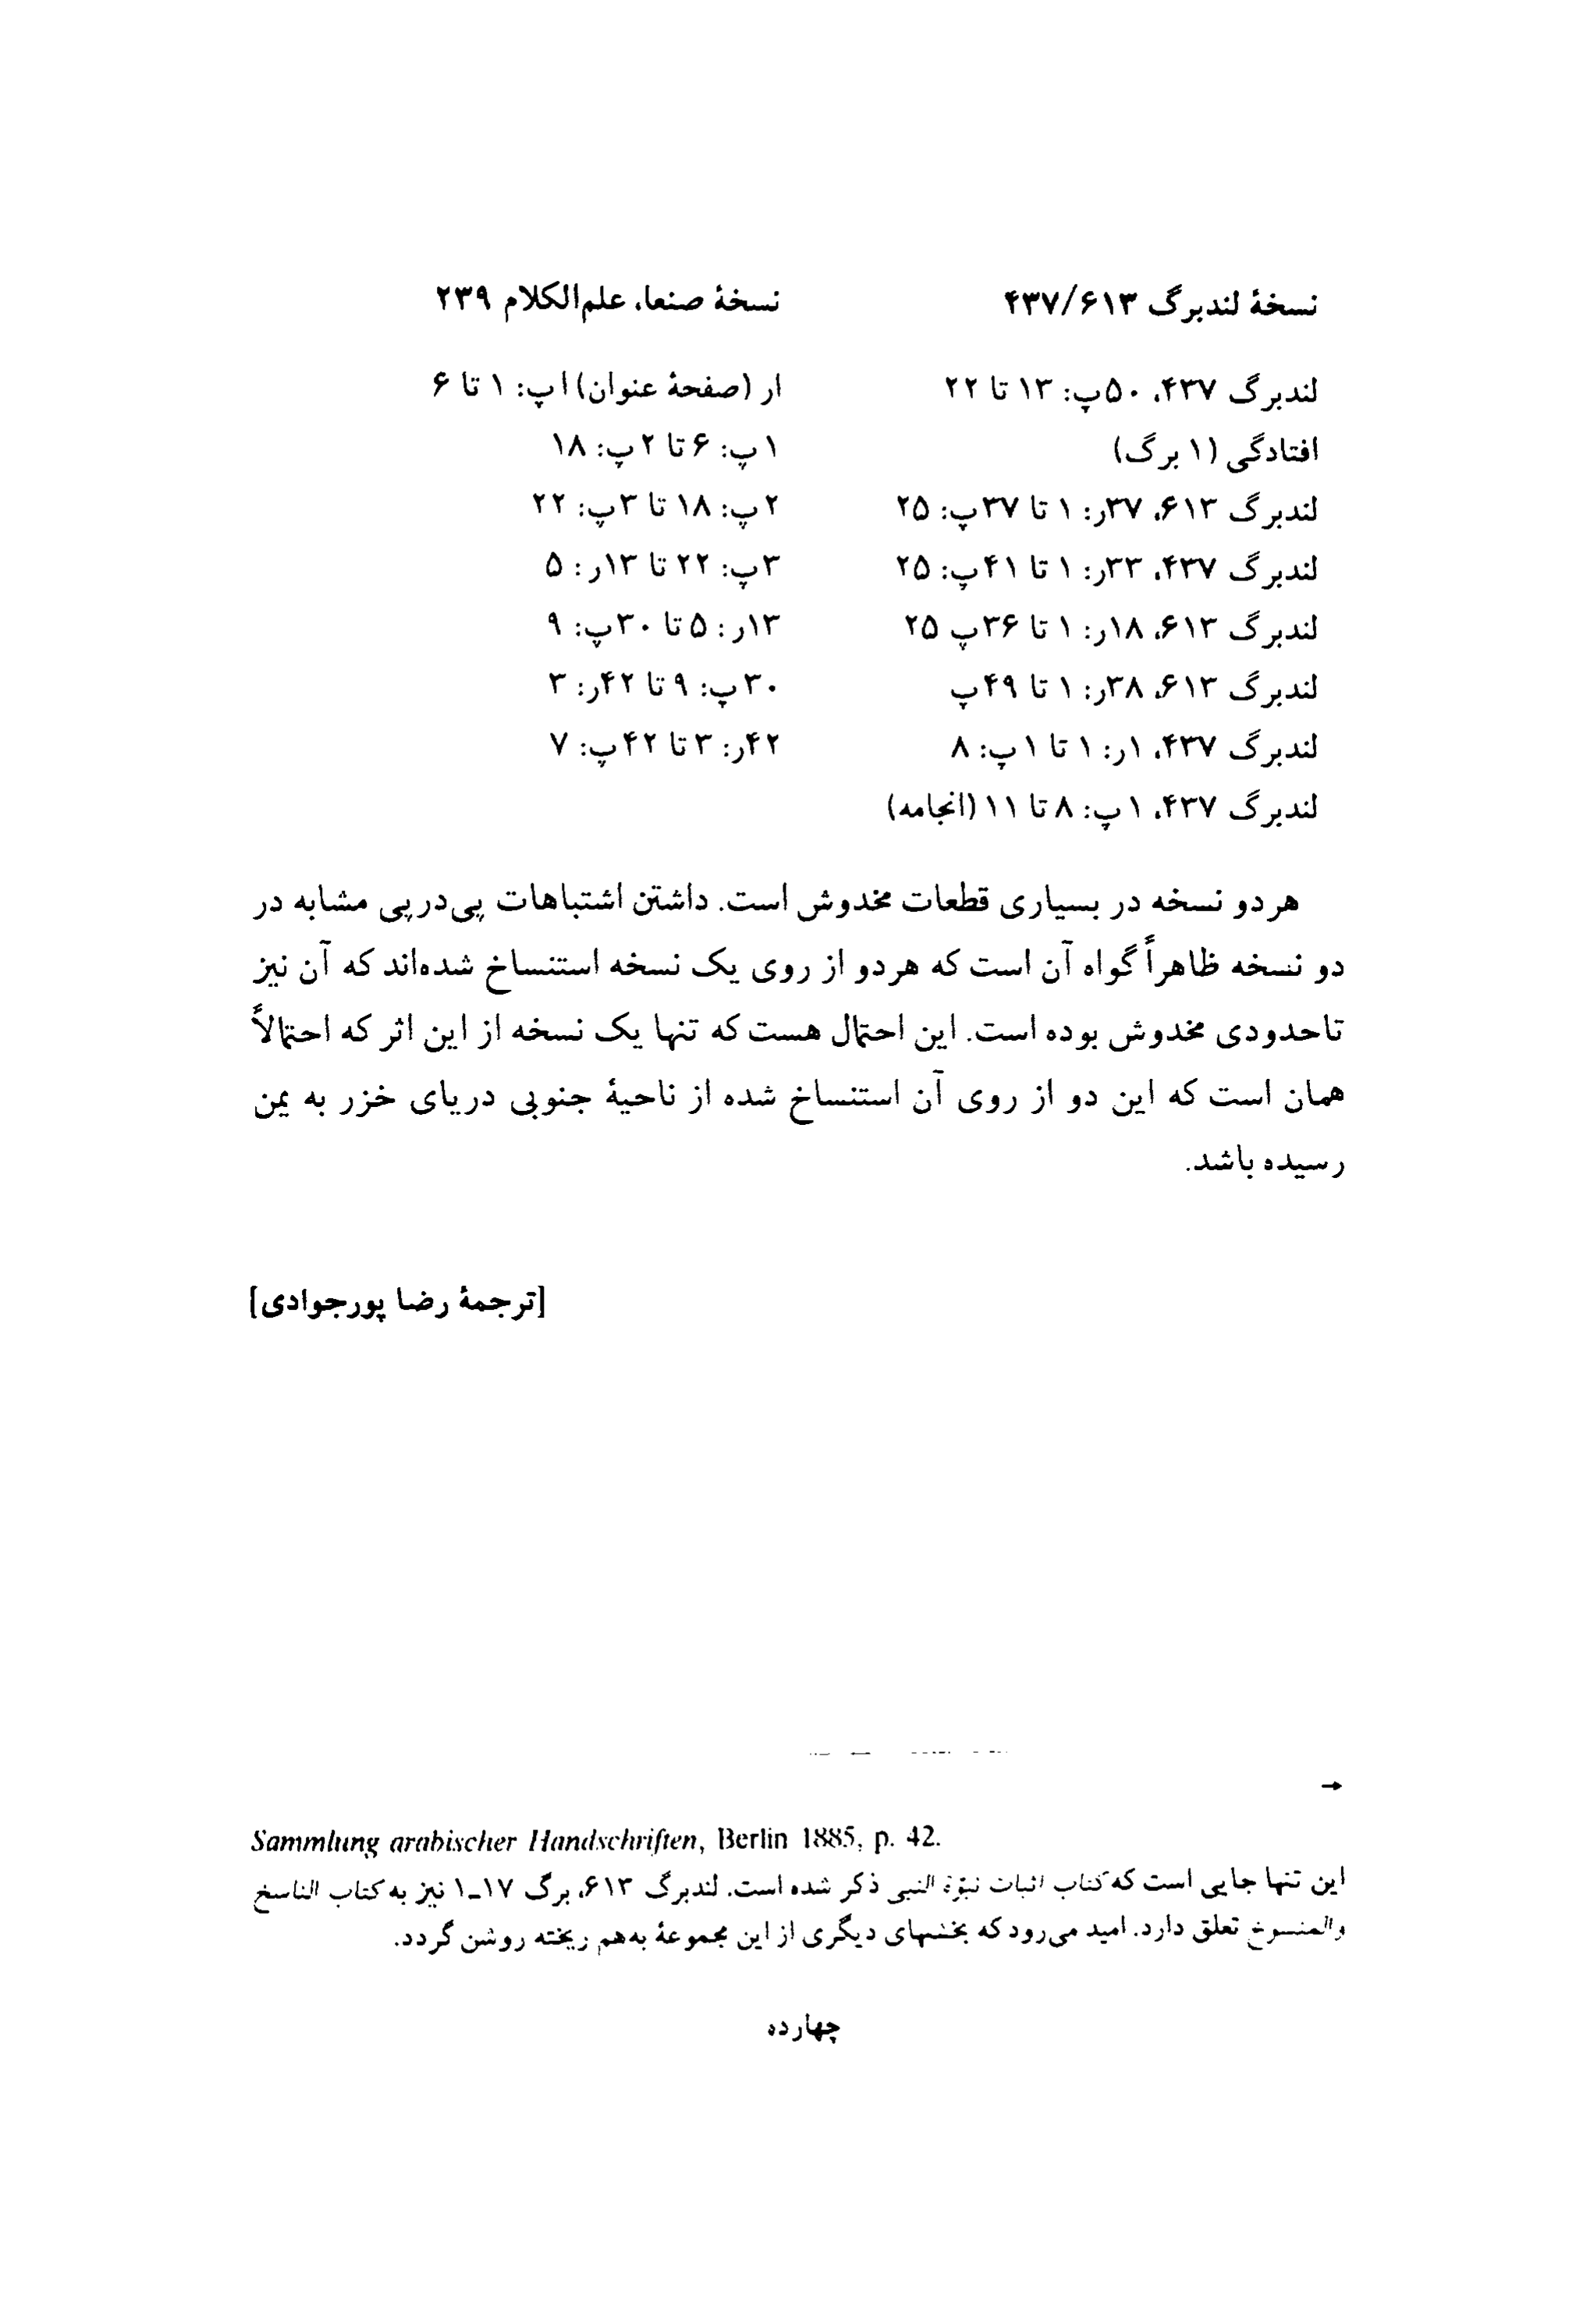 نسخهٔ لندبرگ ۴۳۷/۶۱۳ نسخهٔ صنعا، علم‌الکلام ۲۳۹
لندبرگ ۴۳۷، ۵۰پ: ۱۳ تا ۲۲ ار (صفحهٔ عنوان) اپ: ۱ تا ۶
افتادگی (۱ برگ) ۱پ: ۶ تا ۲پ: ۱۸
لندبرگ ۶۱۳، ۳۷ر: ۱ تا ۳۷پ: ۲۵ ۲پ: ۱۸ تا ۳پ: ۲۲
لندبرگ ۴۳۷، ۳۳ر: ۱ تا ۴۱پ: ۲۵ ۳پ: ۲۲ تا ۱۳ر: ۵
لندبرگ ۶۱۳، ۱۸ر: ۱ تا ۳۶پ ۲۵ ۱۳ر: ۵ تا ۳۰پ: ۹
لندبرگ ۶۱۳، ۳۸ر: ۱ تا ۴۹پ ۳۰پ: ۹ تا ۴۲ر: ۳
لندبرگ ۴۳۷، ۱ر: ۱ تا ۱پ: ۸ ۴۲ر: ۳ تا ۴۲پ: ۷
لندبرگ ۴۳۷، ۱پ: ۸ تا ۱۱ (انجامه)
هر دو نسخه در بسیاری قطعات مخدوش است. داشتن اشتباهات پی‌درپی مشابه در
دو نسخه ظاهراً گواه آن است که هر دو از روی یک نسخه استنساخ شده‌اند که آن نیز
تاحدودی مخدوش بوده است. این احتمال هست که تنها یک نسخه از این اثر که احتمالاً
همان است که این دو از روی آن استنساخ شده از ناحیهٔ جنوبی دریای خزر به یمن
رسیده باشد.
[ترجمهٔ رضا پورجوادی]
→
Sammlung arabischer Handschriften, Berlin 1885, p. 42.
این تنها جایی است که کتاب اثبات نبوّة النبی ذکر شده است. لندبرگ ۶۱۳، برگ ۱۷ـ۱ نیز به کتاب الناسخ
والمنسوخ تعلق دارد. امید می‌رود که بخشهای دیگری از این مجموعهٔ به‌هم ریخته روشن گردد.
چهارده